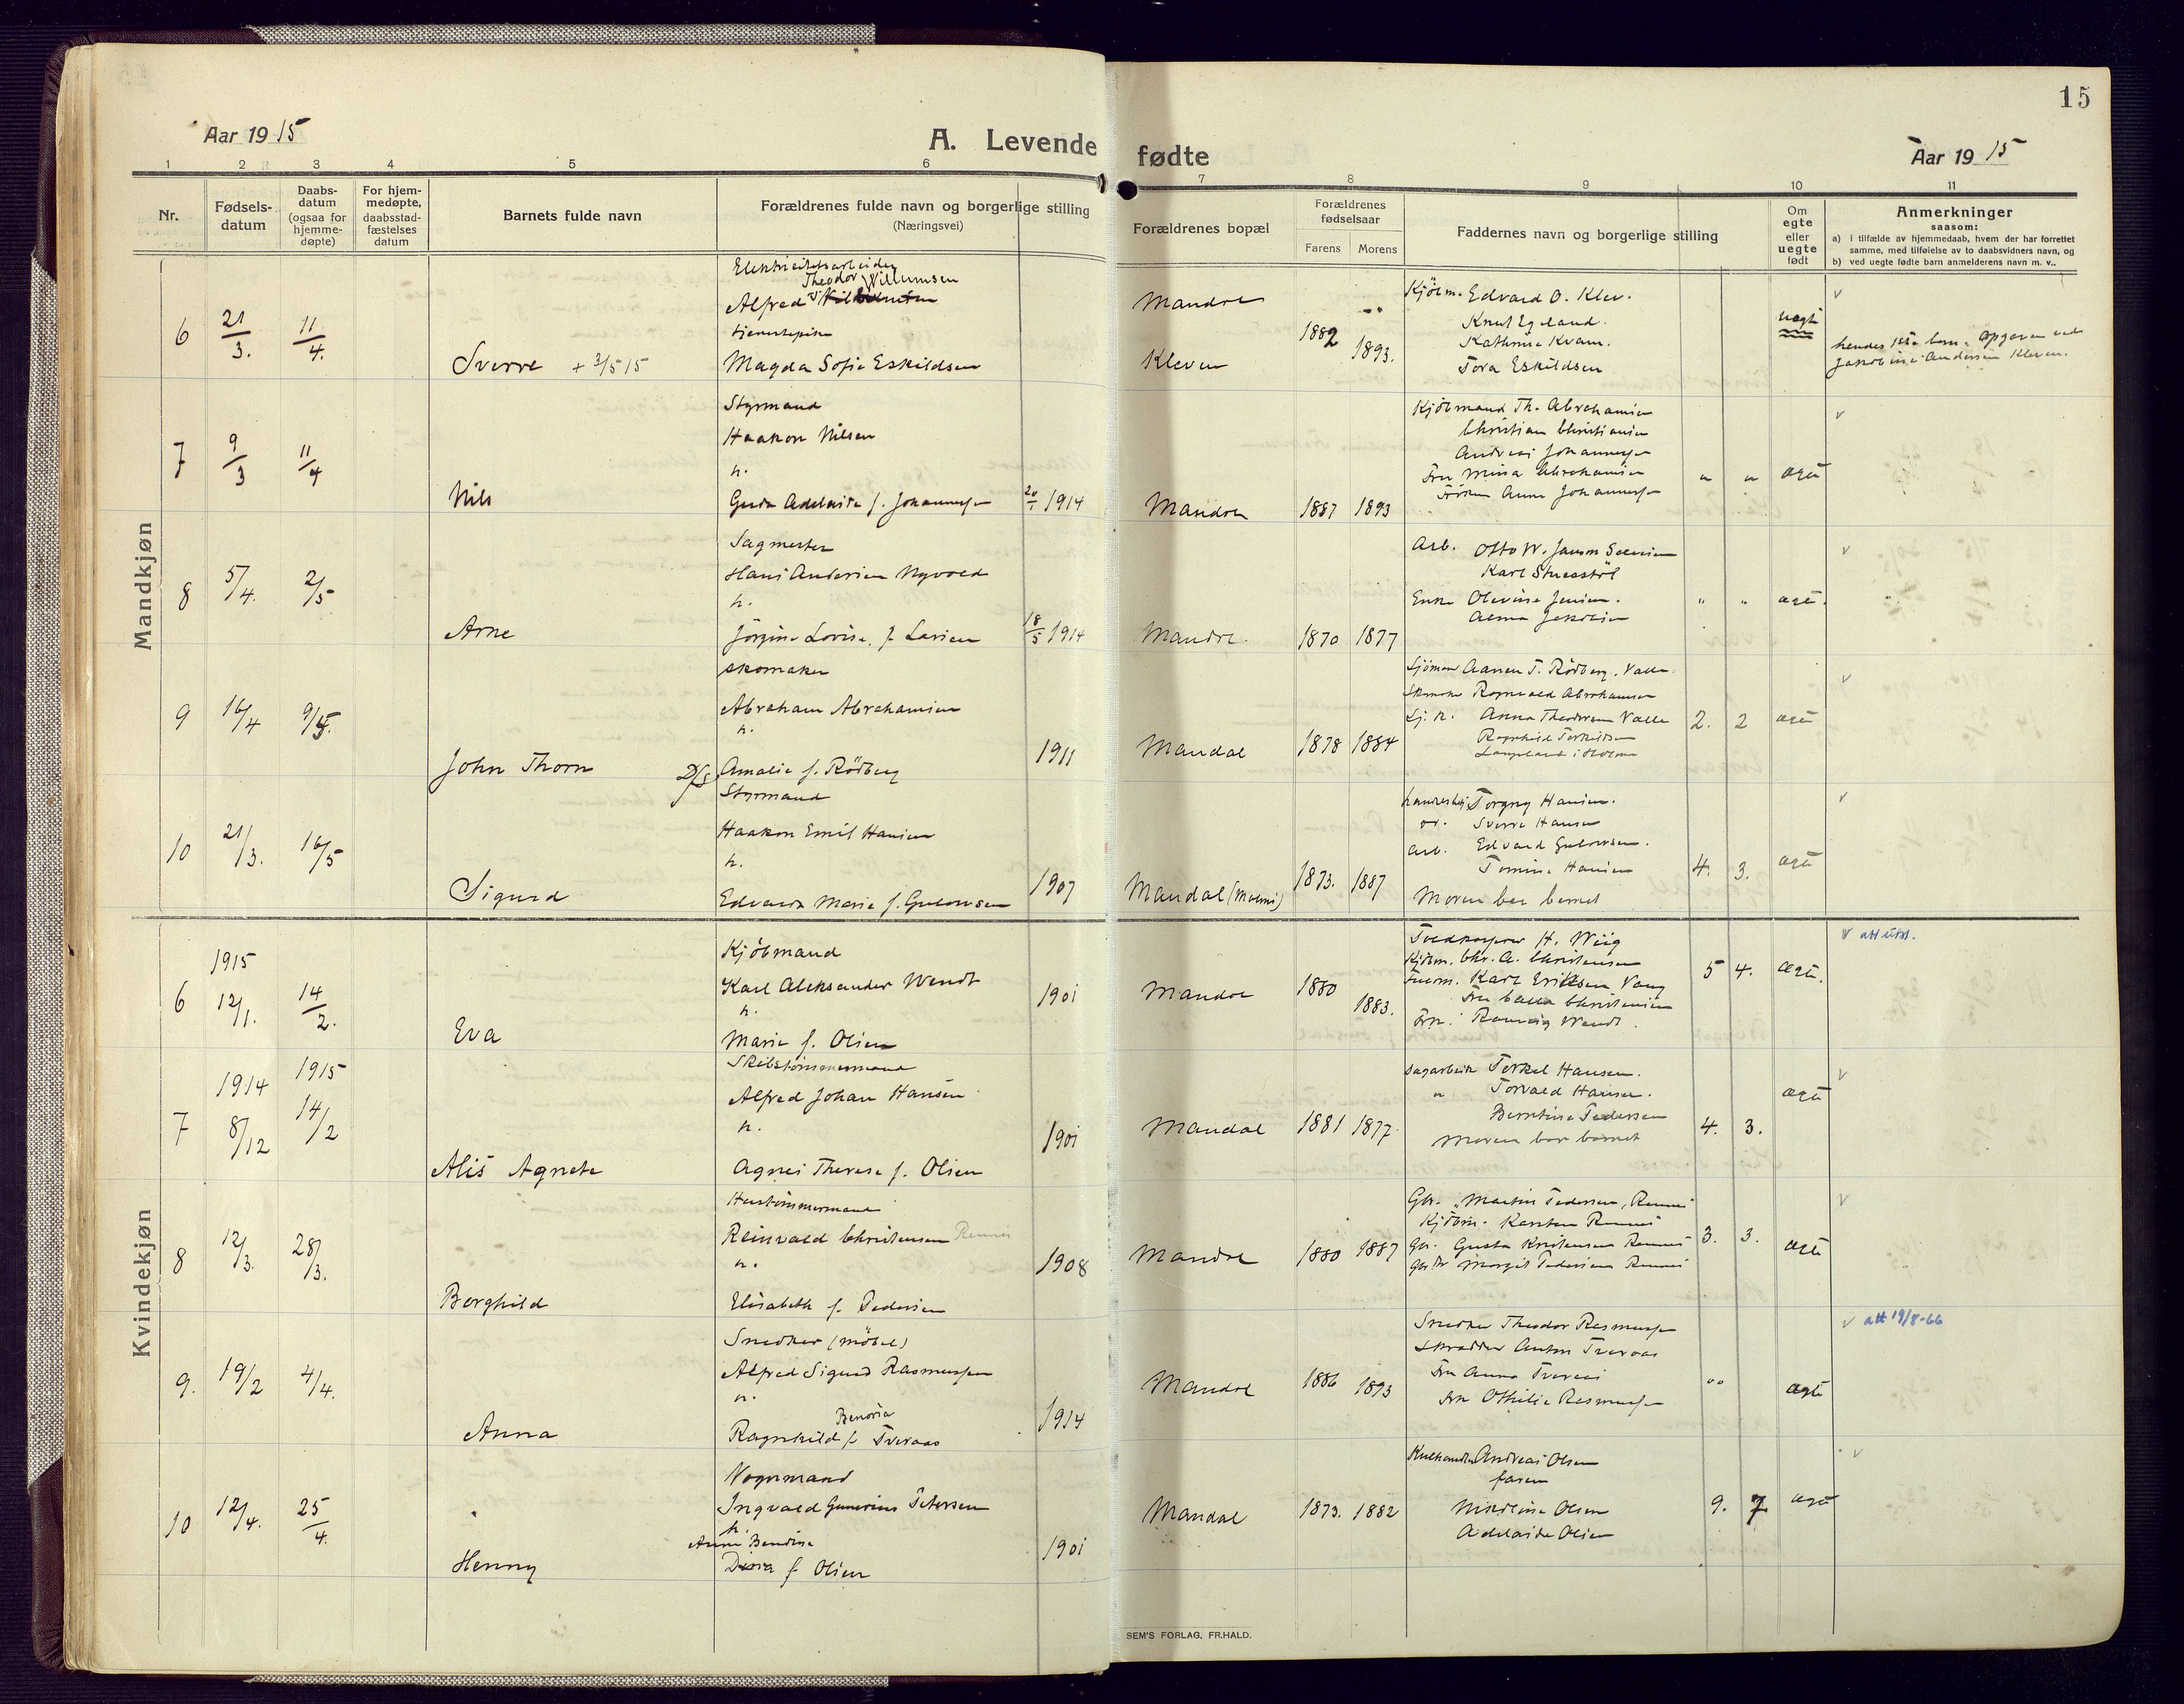 15
Aar 1915
A. Levende fødte
Aar 1915
1 2 3 4 5 6 7 8 9 10 11
Nr.
Fødsels-
datum
Daabs-
datum
(ogsaa for
hjemme-
døpte)
For hjem-
medøpte,
daabsstad-
fæstelses
datum
Barnets fulde navn
Forældrenes fulde navn og borgerlige stilling
(Næringsvei)
Forældrenes bopæl
Forældrenes
fødselsaar
Farens Morens
Faddernes navn og borgerlige stilling
Om
egte
eller
uegte
født
Anmerkninger
saasom:
a) i tilfælde av hjemmedaab, hvem der har forrettet
samme, med tilføielse av to daabsvidners navn, og
b) ved uegte fødte barn anmelderens navn m. v..
Mandkjøn
6 21/3. 11/4.
Sverre + 3/5 15
Elektricitetsarbeider
Theodor Willumsen
Alfred
tjenestepike
Magda Sofie Eskildsen
Mandal
Kleven
1882 1893.
Kjöbm. Edvard O. Klev.
Knut Egeland.
Kathrine Kvam.
Tora Eskildsen
uegte
hendes 1ste barn. Opgaven ved
Jakobine Andersen Kleven.
7 9/3 11/4
Nils
Styrmand
Haakon Nilsen
h.
Gerda Adelaide f. Johannessen
1914
Mandal 1887 1893
Kjöbmand Th. Abrahamsen
Christian Christiansen
Andreas Johannessen
Fru Mina Abrahamsen
Fröken Anna Johannessen
" " ægte
8 5/4. 2/5
Arne
Sagmester
Hans Andersen Nyvold
h.
Jörgine Lovise f. Larsen
18/5 1914
Mandal 1870 1877
Arb. Otto W. Jansen
Karl
Enke Olevine Jensen.
Alma Jakobsen
" " ægte.
9 16/4 9/5.
John Thorn
skomaker
Abraham Abrahamsen
h.
Amalie f. Rödberg
1911
Mandal 1878 1884
Sjömand Aanen T. Rödberg. Valle.
Skomaker Romuald Abrahamsen
Sj. h. Anna Theodorsen Valle
Ragnhild Torkildsen
2. 2 ægte
10 21/3. 16/5
Sigurd
Styrmand
Haakon Emil Hansen
h.
Edvarda Marie f. Gulowsen
1907
Mandal (Malmö) 1873. 1887
Torgny Hansen.
Sverre Hansen
Arb. Edvard Gulowsen.
Tomine Hansen
Moren bar barnet
4. 3. ægte
Kvindekjøn
6 1915 12/1. 14/2.
Eva
Kjöbmand
Karl Aleksander Wendt
h.
Marie f. Olsen
1901
Mandal 1880 1883.
Toldkasserer H. Wiig
Kjöbm. Chr. A. Christensen
Karl Eriksen Vang
Fru Christensen
Frk. Ranveig Wendt.
5 4. ægte.
att utst.
7 1914 8/12 1915 14/2
Alis Agnete
Skibstömmermand
Alfred Johan Hansen
h.
Agnes Therese f. Olsen
1901
Mandal 1881 1877.
Sagarbeider Terkel Hansen.
" Torvald Hansen.
Berntine Pedersen
Moren bar barnet
4. 3. ægte
8 12/3. 28/3.
Borghild
Hustömmermand
Reinvald Christensen Rennes
h.
Elisabeth f. Pedersen
1908
Mandal 1880 1887
Gbr. Martin Pedersen, Rennes
Kjöbm. Karsten Rennes
Gbr. Gusta Kristensen Rennes
Margit Pedersen Rennes
3. 3. ægte
9. 19/2 4/4.
Anna
Snedker (möbel)
Alfred Sigurd Rasmussen
h.
Benoria
Ragnhild f. Tveraas
1914
Mandal 1886 1893
Snedker Theodor Rasmussen
Skrædder Anton Tveraas
Fru Anna Tveraas
Frk Othilie Rasmussen
" ægte
att 19/8-66
10 12/4. 25/4.
Henny
Vognmand
Ingvald Gunerius Petersen
h.
Anne Bendine
f Olsen
1901
Mandal 1873. 1882
Andreas Olsen
faren
Olsen
Adelaide Olsen
9. 7 ægte
SEM'S FORLAG, FR.HALD.